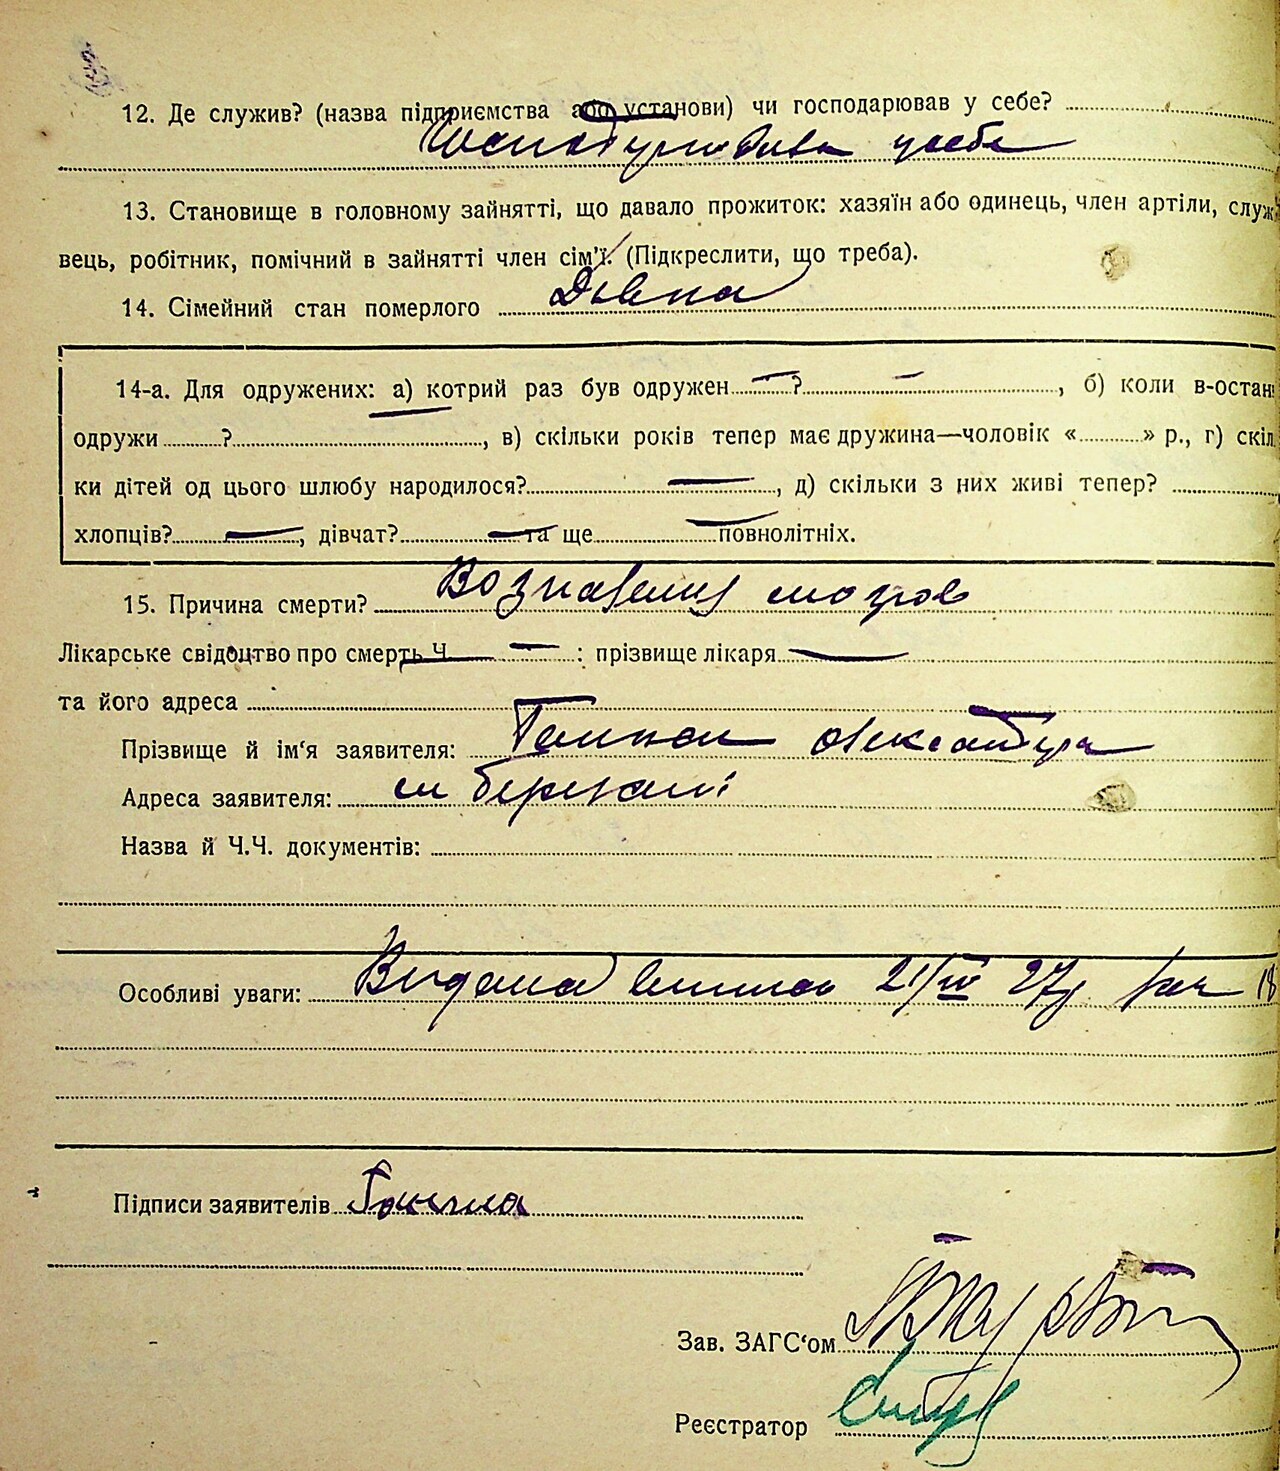 12. Де служив? (назва підприємства або установи) чи господарював у себе?
Господурювала у себе
13. Становище в головному зайнятті, що давало прожиток: хазяїн або одинець, член артіли, служ
вець, робітник, помічний в зайнятті член сім'ї. (Підкреслити, що треба).
14. Сімейний стан померлого Дівка
14-а. Для одружених: а) котрий раз був одружен — ? — , б) коли в-остан
одружи ? , в) скільки років тепер має дружина—чоловік « » р., г) скіл
ки дітей од цього шлюбу народилося? — , д) скільки з них живі тепер?
хлопців? — , дівчат? — та ще — повнолітніх.
15. Причина смерти?
Лікарське свідоцтво про смерть Ч — : прізвище лікаря —
та його адреса —
Прізвище й ім'я заявителя: Олександра
Адреса заявителя: м Березані
Назва й Ч.Ч. документів:
Особливі уваги: Видана 21/IV 27р 18
Підписи заявителів
Зав. ЗАГС'ом
Реєстратор